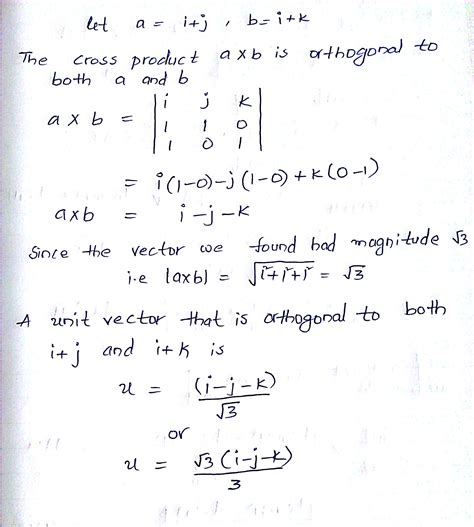 let a = i+j , b = i+k
The cross product a x b is orthogonal to
both a and b
a x b = | i j k |
| 1 1 0 |
| 1 0 1 |
= i(1-0)-j(1-0)+k(0-1)
axb = i-j-k
Since the vector we found had magnitude √3
i.e |axb| = √(1²+1²+1²) = √3
A unit vector that is orthogonal to both
i+j and i+k is
u = (i-j-k)/√3
or
u = √3(i-j-k)/3